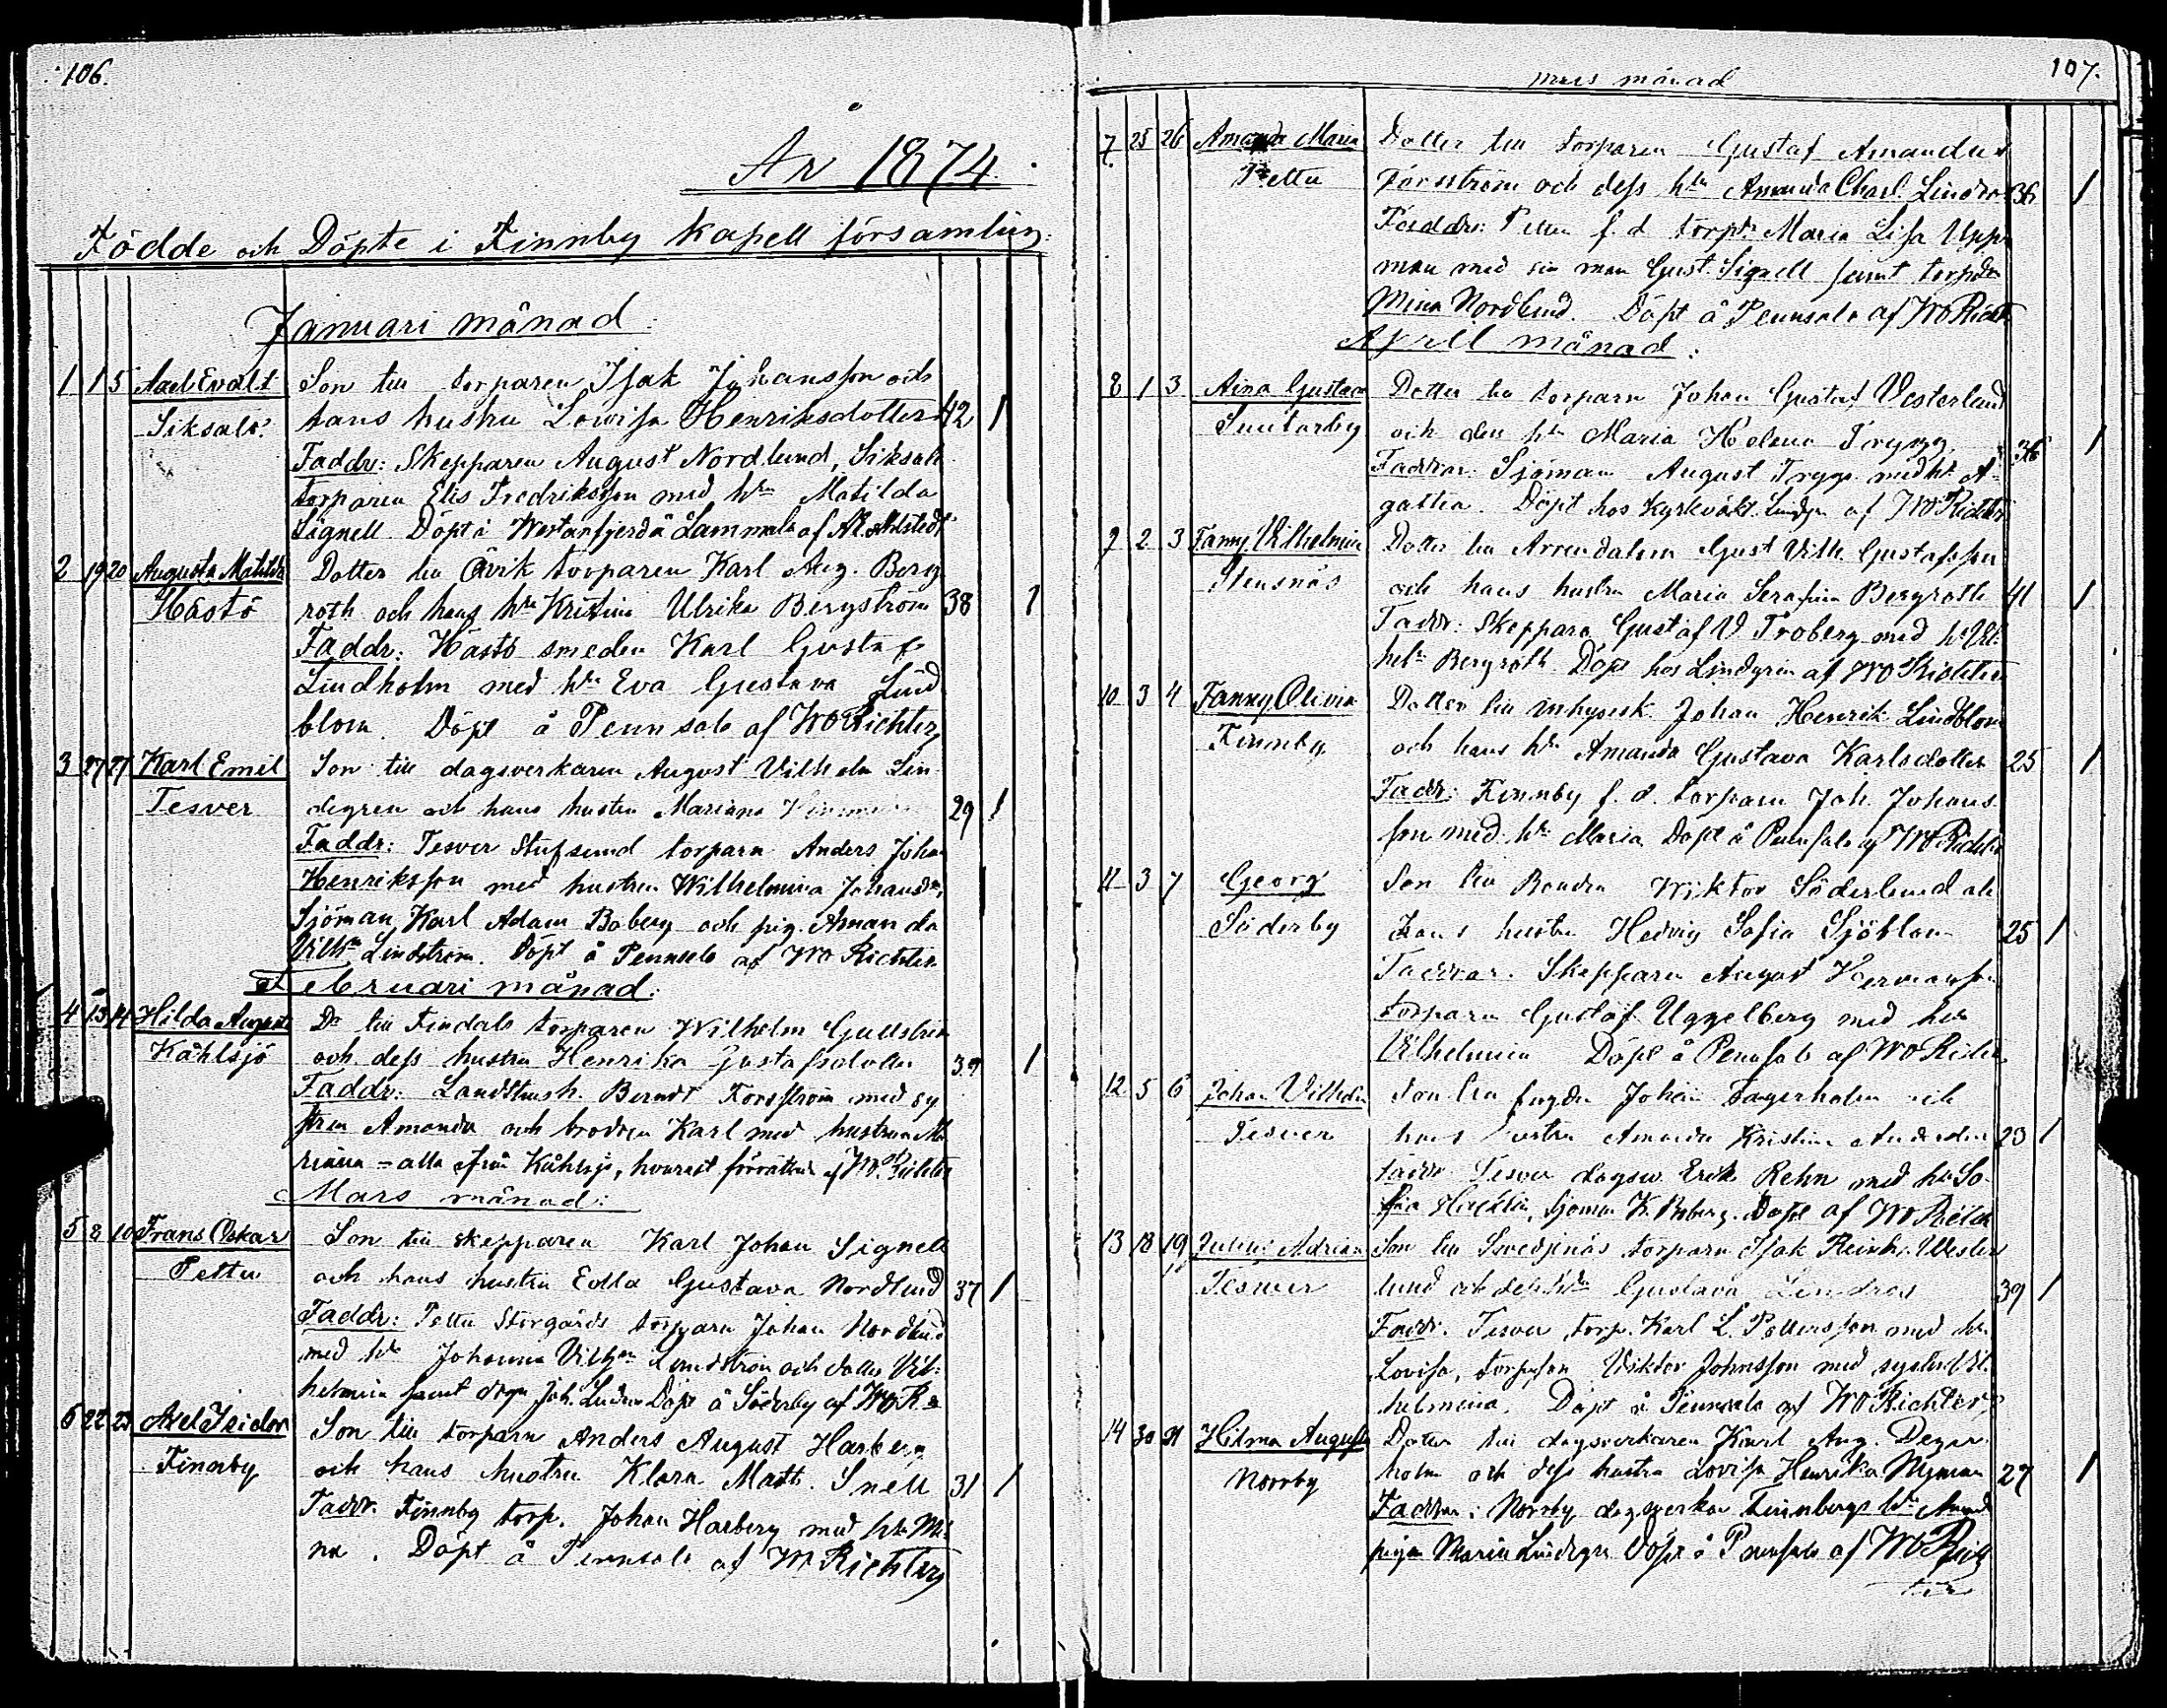 106.
År 1874.
Födde och Döpte i Finnby Kapell församling:
Januari månad:
1 1 5 Axel Evalt Son till torparen Isak Johansson och
Siksalo. hans hustru Lowisa Henriksdotter 42 1
Faddr: Skepparen August Nordlund, Siksalo
torparen Elis Fredriksson med hn Matilda
Signell. Döpt i Westanfjerd å Lammala af
2 19 20 Augusta Matilda Dotter till torparen Karl Aug. Berg
Hästö roth och hans hru Kristina Ulrika Bergström 38 1
Faddr: Hästö smeden Karl Gustaf
Lindholm med hn Eva Gustava Lind
blom. Döpt å Pennsalo af WO Richter
3 27 27 Karl Emil Son till dagsverkaren August Vilhelm Lin
Tesver degren och hans hustru Mariana 29 1
Faddr: Tesver torparn Anders Johan
Henriksson med hustrun Wilhelmina
Sjöman Karl Adam Boberg och pig. Amanda
Vilhna Lindström. Döpt å Pennsalo af WO Richter
Februari månad:
4 13 14 Hilda Augusta Dr till torparen Wilhelm
Kåhlsjö och dess hustru Henrika Gustafsdotter 39 1
Faddr: Berndt Forsström med sy
stren Amanda och brodren Karl med hustrun Ma
riana = alla från Kåhlsjö, hvarest förrättad af WO Richter
Mars månad:
5 8 10 Frans Oskar Son till skepparen Karl Johan Signell
Pettu och hans hustru Edla Gustava Nordlund 37 1
Faddr: Pettu Storgårds torparn Johan Nordlund
med hn Johanna Vilhna Lindström och dotter Vil:
helmina samt Joh. Döpt å Söderby af WO R
6 22 23 Axel Isidor Son till torparn Anders August Harberg
Finnby och hans hustru Klara Math. Snell 31 1
Faddr. Finnby torp. Johan Harberg med hn Mi
na. Döpt å Pennsalo af W Richter
Mars månad
107.
7. 25 26 Amanda Maria Dotter till torparen Gustaf Amandus
Pettu Forsström och dess hn Amanda Charl. Lindro 36 1
Faddr: Pettu f. d torpr Maria Lisa Upp
man med sin man Gust. Signell samt
Mina Nordlund. Döpt å Pennsalo af WO Richt
April månad:
8 1 3 Aina Gustava Dotter till torparn Johan Gustaf Vesterlund
och dess hn Maria Helena Trygg 36 1
Faddrar: Sjöman August Trygg med hn A
gatha. Döpt hos Kyrkväkt. af WO Richter
9 2 3 Fanny Vilhelmina Dotter till Arrendatorn Gust Vilh. Gustafsson
Stensnäs och hans hustru Maria Serafina Bergroth 41 1
Faddr: Skeppare Gustaf V Froberg med hn Vil
helm Bergroth. Döpt hos Lindgren af WO Richter
10 3 4 Fanny Olivia Dotter till inhysesk Johan Henrik Lindblom
Finnby och hans hn Amanda Gustava Karlsdotter 25 1
Faddr: Finnby f. d. torparn Joh. Johans
son med hn Maria Döpt å Pennsalo af WO Richter
11 3 7 Georg Son till Bonden Wiktor Söderlund och
Söderby hans hustru Hedvig Sofia Sjöblom 25 1
Faddrar. Skepparn August Hermansson
torparn Gustaf Uggelberg med hn
Vilhelmina Döpt å Pennsalo af WO Richter
12 5 6 Johan Vilhelm Son till Johan Fagerholm och
Tesver hans hustru Amanda Kristina 23 1
Faddr Tesver dagsv. Erik Rehn med hn So-
fia Sjöman K. Boberg. Döpt af WO Richter
13 18 19 Julius Adrian Son till Smedjenäs torparn Isak Reinh. Wester
Tesver lund och dess hn Gustava Lindros 39 1
Faddr. Tesver torp. Karl L. Pettersson med hn
Lovisa, Wiktor Johnsson med systern Vil
helmina. Döpt å Pennsalo af WO Richter
14 30 31 Hilma Augusta Dotter till dagsverkaren Karl Aug. Deger
Norrby holm och dess hustru Lovisa Henrika Nyman 27 1
Faddrar: Norrby dagsverkar hn
pigan Maria Lindegren Döpt å Pennsalo af WO Rich
ter